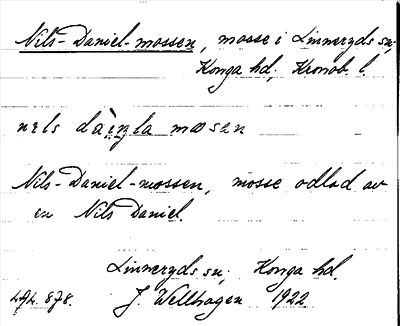 Nils-Daniel-mossen, mosse i Linneryds sn;
Konga hd; Kronob. l.
nels dàn̥la mosen
Nils-Daniel-mossen, mosse odlad av
en Nils Daniel.
Linneryds sn; Konga hd.
494.878. J. Wellhagen 1922